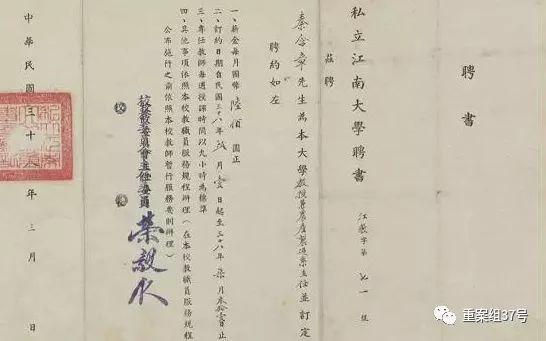 聘書
私立江南大學聘書
江教字第七一號
茲聘
秦含章先生為本大學教授兼農產製造系主任並訂定
聘約如左
一、薪金每月國幣陸佰圓正
二、訂約日期自民國三十八年貳月壹日起至三十八年柒月叁拾壹日止
三、專任教師每週授課時間以九小時為標準
四、其他事項依照本校教職員服務規程辦理(在本校教職員服務規程
公布施行之前依照本校教師暫行服務要則辦理)
校務委員會主任委員 榮毅仁
中華民國三十 年三月 日
重案组37号